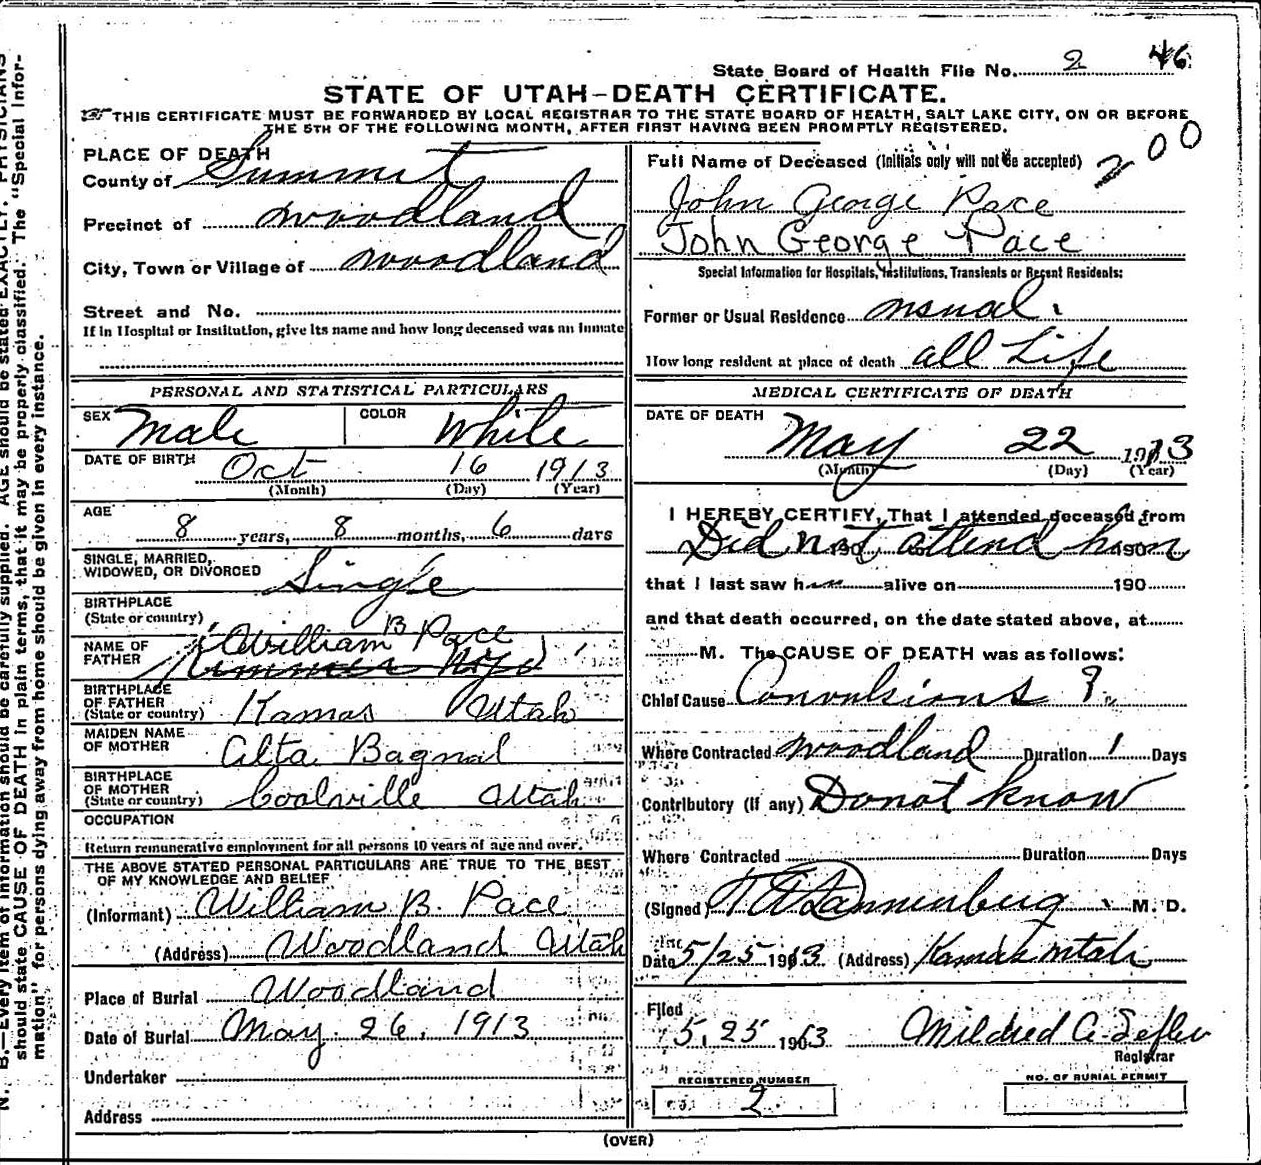 State Board of Health File No. 2 46
STATE OF UTAH—DEATH CERTIFICATE.
THIS CERTIFICATE MUST BE FORWARDED BY LOCAL REGISTRAR TO THE STATE BOARD OF HEALTH, SALT LAKE CITY, ON OR BEFORE
THE 5TH OF THE FOLLOWING MONTH, AFTER FIRST HAVING BEEN PROMPTLY REGISTERED.
200
PLACE OF DEATH
County of Summit
Precinct of Woodland
City, Town or Village of Woodland
Street and No.
If in Hospital or Institution, give its name and how long deceased was an inmate
Full Name of Deceased (Initials only will not be accepted)
John George Pace
John George Pace
Special Information for Hospitals, Institutions, Transients or Recent Residents:
Former or Usual Residence usual.
How long resident at place of death all Life
PERSONAL AND STATISTICAL PARTICULARS
SEX Male COLOR White
DATE OF BIRTH Oct 16 1913
(Month) (Day) (Year)
AGE
8 years, 8 months, 6 days
SINGLE, MARRIED,
WIDOWED, OR DIVORCED Single
BIRTHPLACE
(State or country)
NAME OF
FATHER William B Pace
BIRTHPLACE
OF FATHER
(State or country) Kamas Utah
MAIDEN NAME
OF MOTHER Alta Bagnal
BIRTHPLACE
OF MOTHER
(State or country) Coalville Utah
OCCUPATION
Return remunerative employment for all persons 10 years of age and over.
THE ABOVE STATED PERSONAL PARTICULARS ARE TRUE TO THE BEST
OF MY KNOWLEDGE AND BELIEF
(Informant) William B. Pace
(Address) Woodland Utah
Place of Burial Woodland
Date of Burial May 26, 1913
Undertaker
Address
MEDICAL CERTIFICATE OF DEATH
DATE OF DEATH
May 22 1913
(Month) (Day) (Year)
I HEREBY CERTIFY, That I attended deceased from
Did not attend him
that I last saw h alive on 190
and that death occurred, on the date stated above, at
M. The CAUSE OF DEATH was as follows:
Chief Cause Convulsions ?
Where Contracted Woodland Duration 1 Days
Contributory (if any) Do not know
Where Contracted Duration Days
(Signed) Dannenberg M. D.
Date 5/25 1913 (Address) Kamas Utah
Filed
5, 25 1903 Mildred A.
Registrar
REGISTERED NUMBER
2
NO. OF BURIAL PERMIT
(OVER)
N. B.—Every item of information should be carefully supplied. AGE should be stated EXACTLY. PHYSICIANS
should state CAUSE OF DEATH in plain terms, that it may be properly classified. The "Special Infor-
mation" for persons dying away from home should be given in every instance.